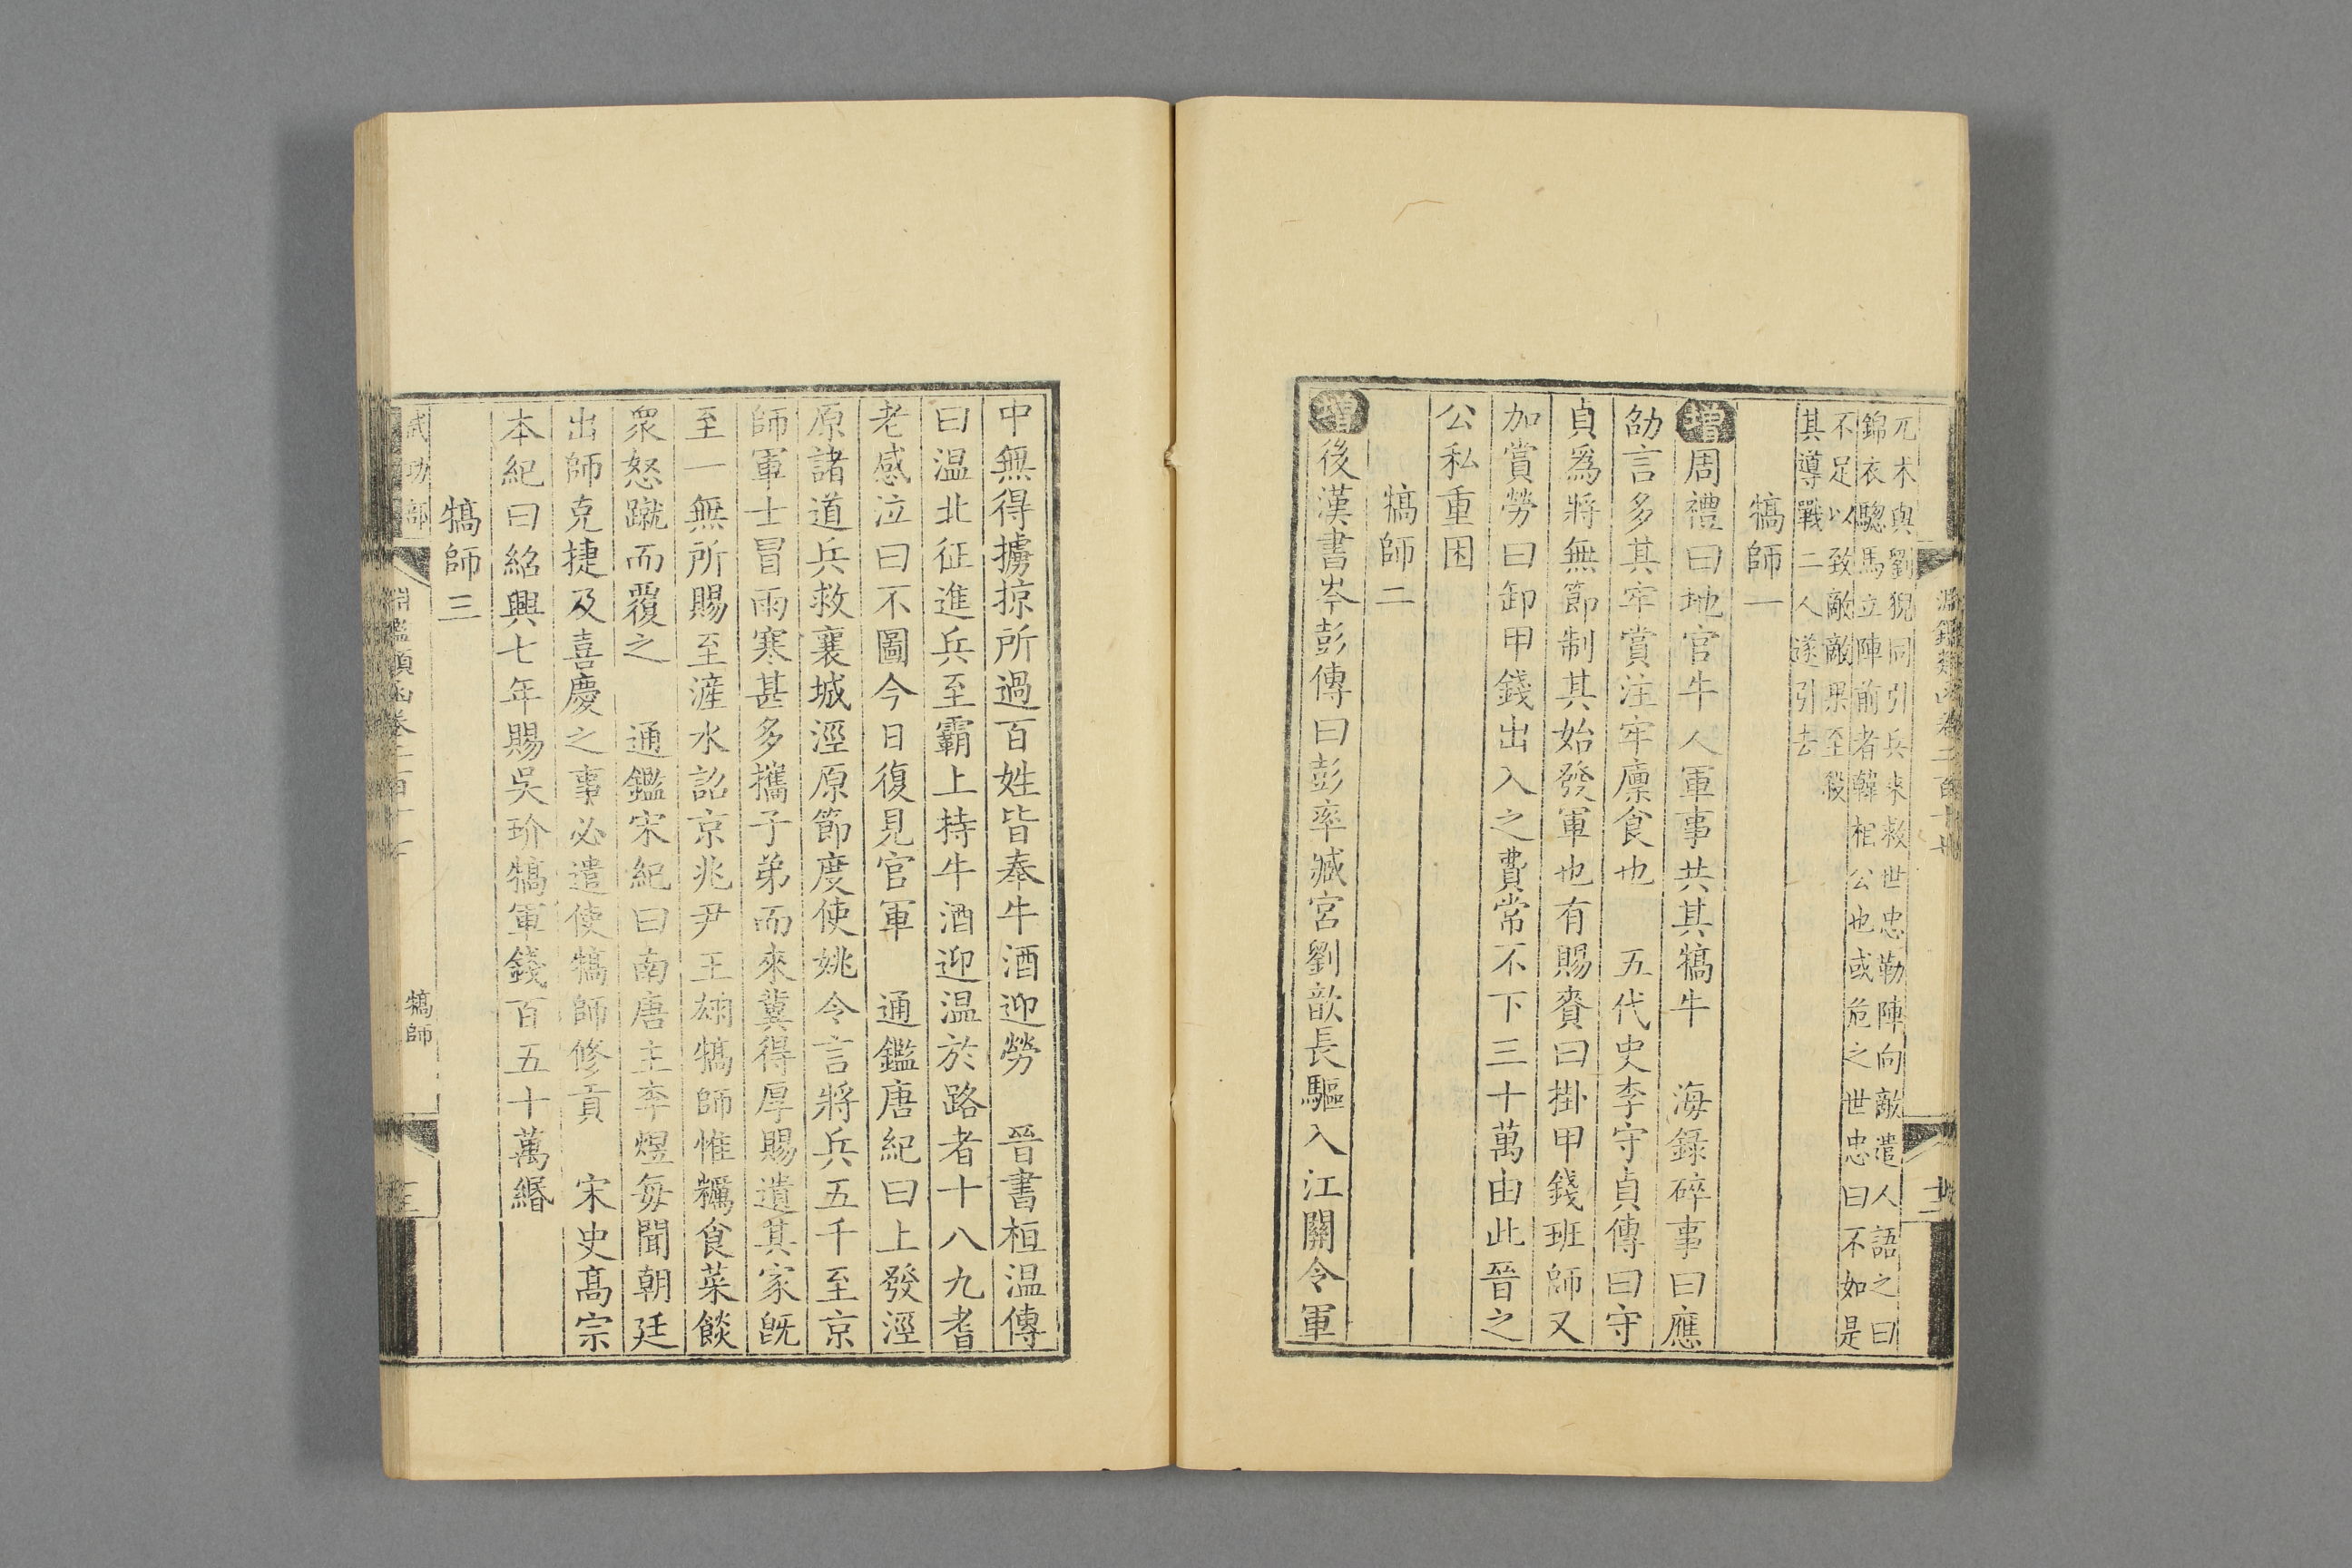 兀术與劉猊同引兵來救世忠勒陣向敵遣人語之曰
錦衣驄馬立陣前者韓相公也或危之世忠曰不如是
不足以致敵敵果至殺
其導戰二人遂引去
犒師一
增周禮曰地官牛人軍事共其犒牛 海錄碎事曰應
劭言多其牢賞注牢廩食也 五代史李守貞傳曰守
貞爲將無節制其始發軍也有賜賚曰掛甲錢班師又
加賞勞曰卸甲錢出入之費常不下三十萬由此晉之
公私重困
犒師二
增後漢書岑彭傳曰彭率臧宮劉歆長驅入江關令軍
中無得擄掠所過百姓皆奉牛酒迎勞 晉書桓温傳
曰温北征進兵至霸上持牛酒迎温於路者十八九耆
老感泣曰不圖今日復見官軍 通鑑唐紀曰上發涇
原諸道兵救襄城涇原節度使姚令言將兵五千至京
師軍士冒雨寒甚多攜子弟而來冀得厚賜遺其家旣
至一無所賜至滻水詔京兆尹王翃犒師惟糲食菜餤
衆怒蹴而覆之 通鑑宋紀曰南唐主李煜每聞朝廷
出師克捷及喜慶之事必遣使犒師修貢 宋史高宗
本紀曰紹興七年賜吳玠犒軍錢百五十萬緡
犒師三
武功部
淵鑑類函卷二百十七
犒師